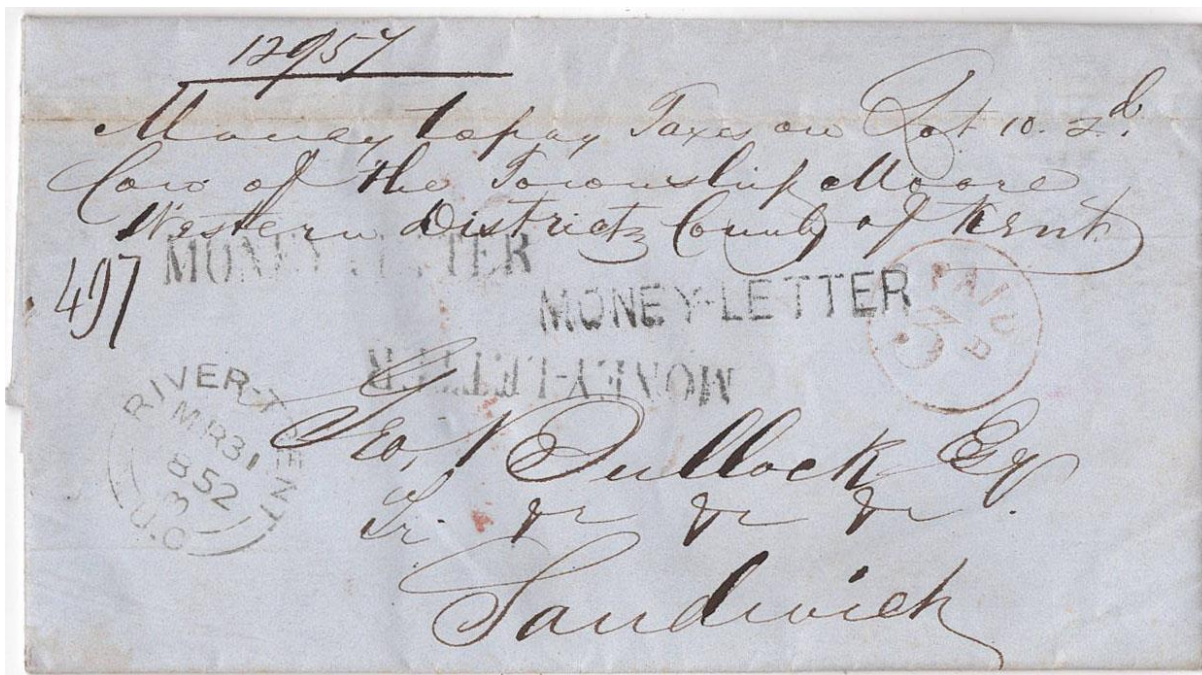 12957
Money to pay Taxes on Lot 10. 2d.
Con of the Township Moore
Western District County of Kent
497
MONEY-LETTER
MONEY-LETTER
MONEY-LETTER
PAID
3
RIVER-TRENT
MR31
1852
U.C
Geo, Bullock Esq
&c &c &c
Sandwich